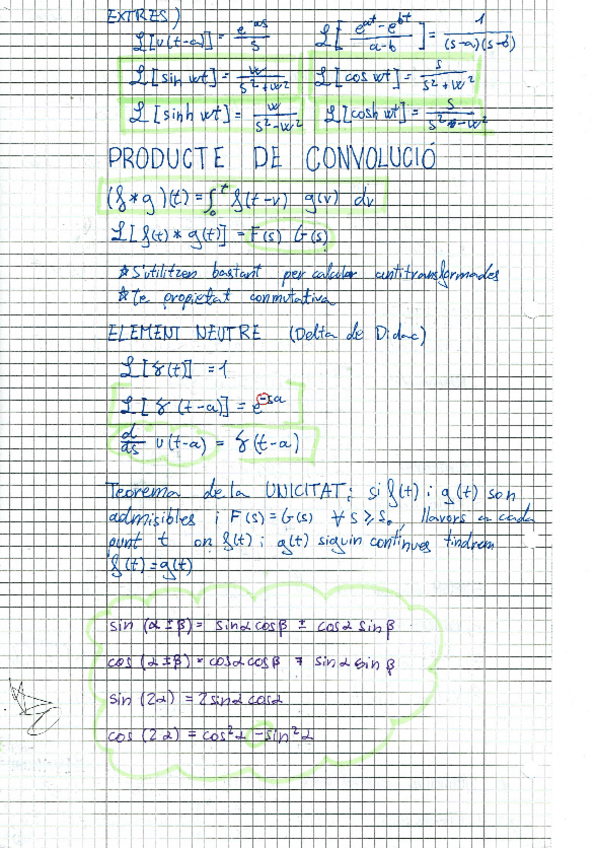 EXTRES)
ℒ[u(t-a)] = e^-as/s   ℒ[(e^at - e^bt)/(a-b)] = 1/((s-a)(s-b))
ℒ[sin wt] = w/(s²+w²)   ℒ[cos wt] = s/(s²+w²)
ℒ[sinh wt] = w/(s²-w²)   ℒ[cosh wt] = s/(s²-w²)
PRODUCTE DE CONVOLUCIÓ
(f * g)(t) = ∫₀^t f(t-v) g(v) dv
ℒ[f(t) * g(t)] = F(s) G(s)
* S'utilitzen bastant per calcular antitransformades
* Te propietat conmutativa
ELEMENT NEUTRE (Delta de Didac)
ℒ[δ(t)] = 1
ℒ[δ(t-a)] = e^-sa
d/ds u(t-a) = δ(t-a)
Teorema de la UNICITAT: si f(t) i g(t) son
admisibles i F(s) = G(s) ∀ s ≥ s₀, llavors a cada
punt t on f(t) i g(t) siguin continues tindrem
f(t) = g(t)
sin (α ± β) = sinα cosβ ± cosα sinβ
cos (α ± β) = cosα cosβ ∓ sinα sin β
sin (2α) = 2 sinα cosα
cos (2α) = cos²α - sin²α